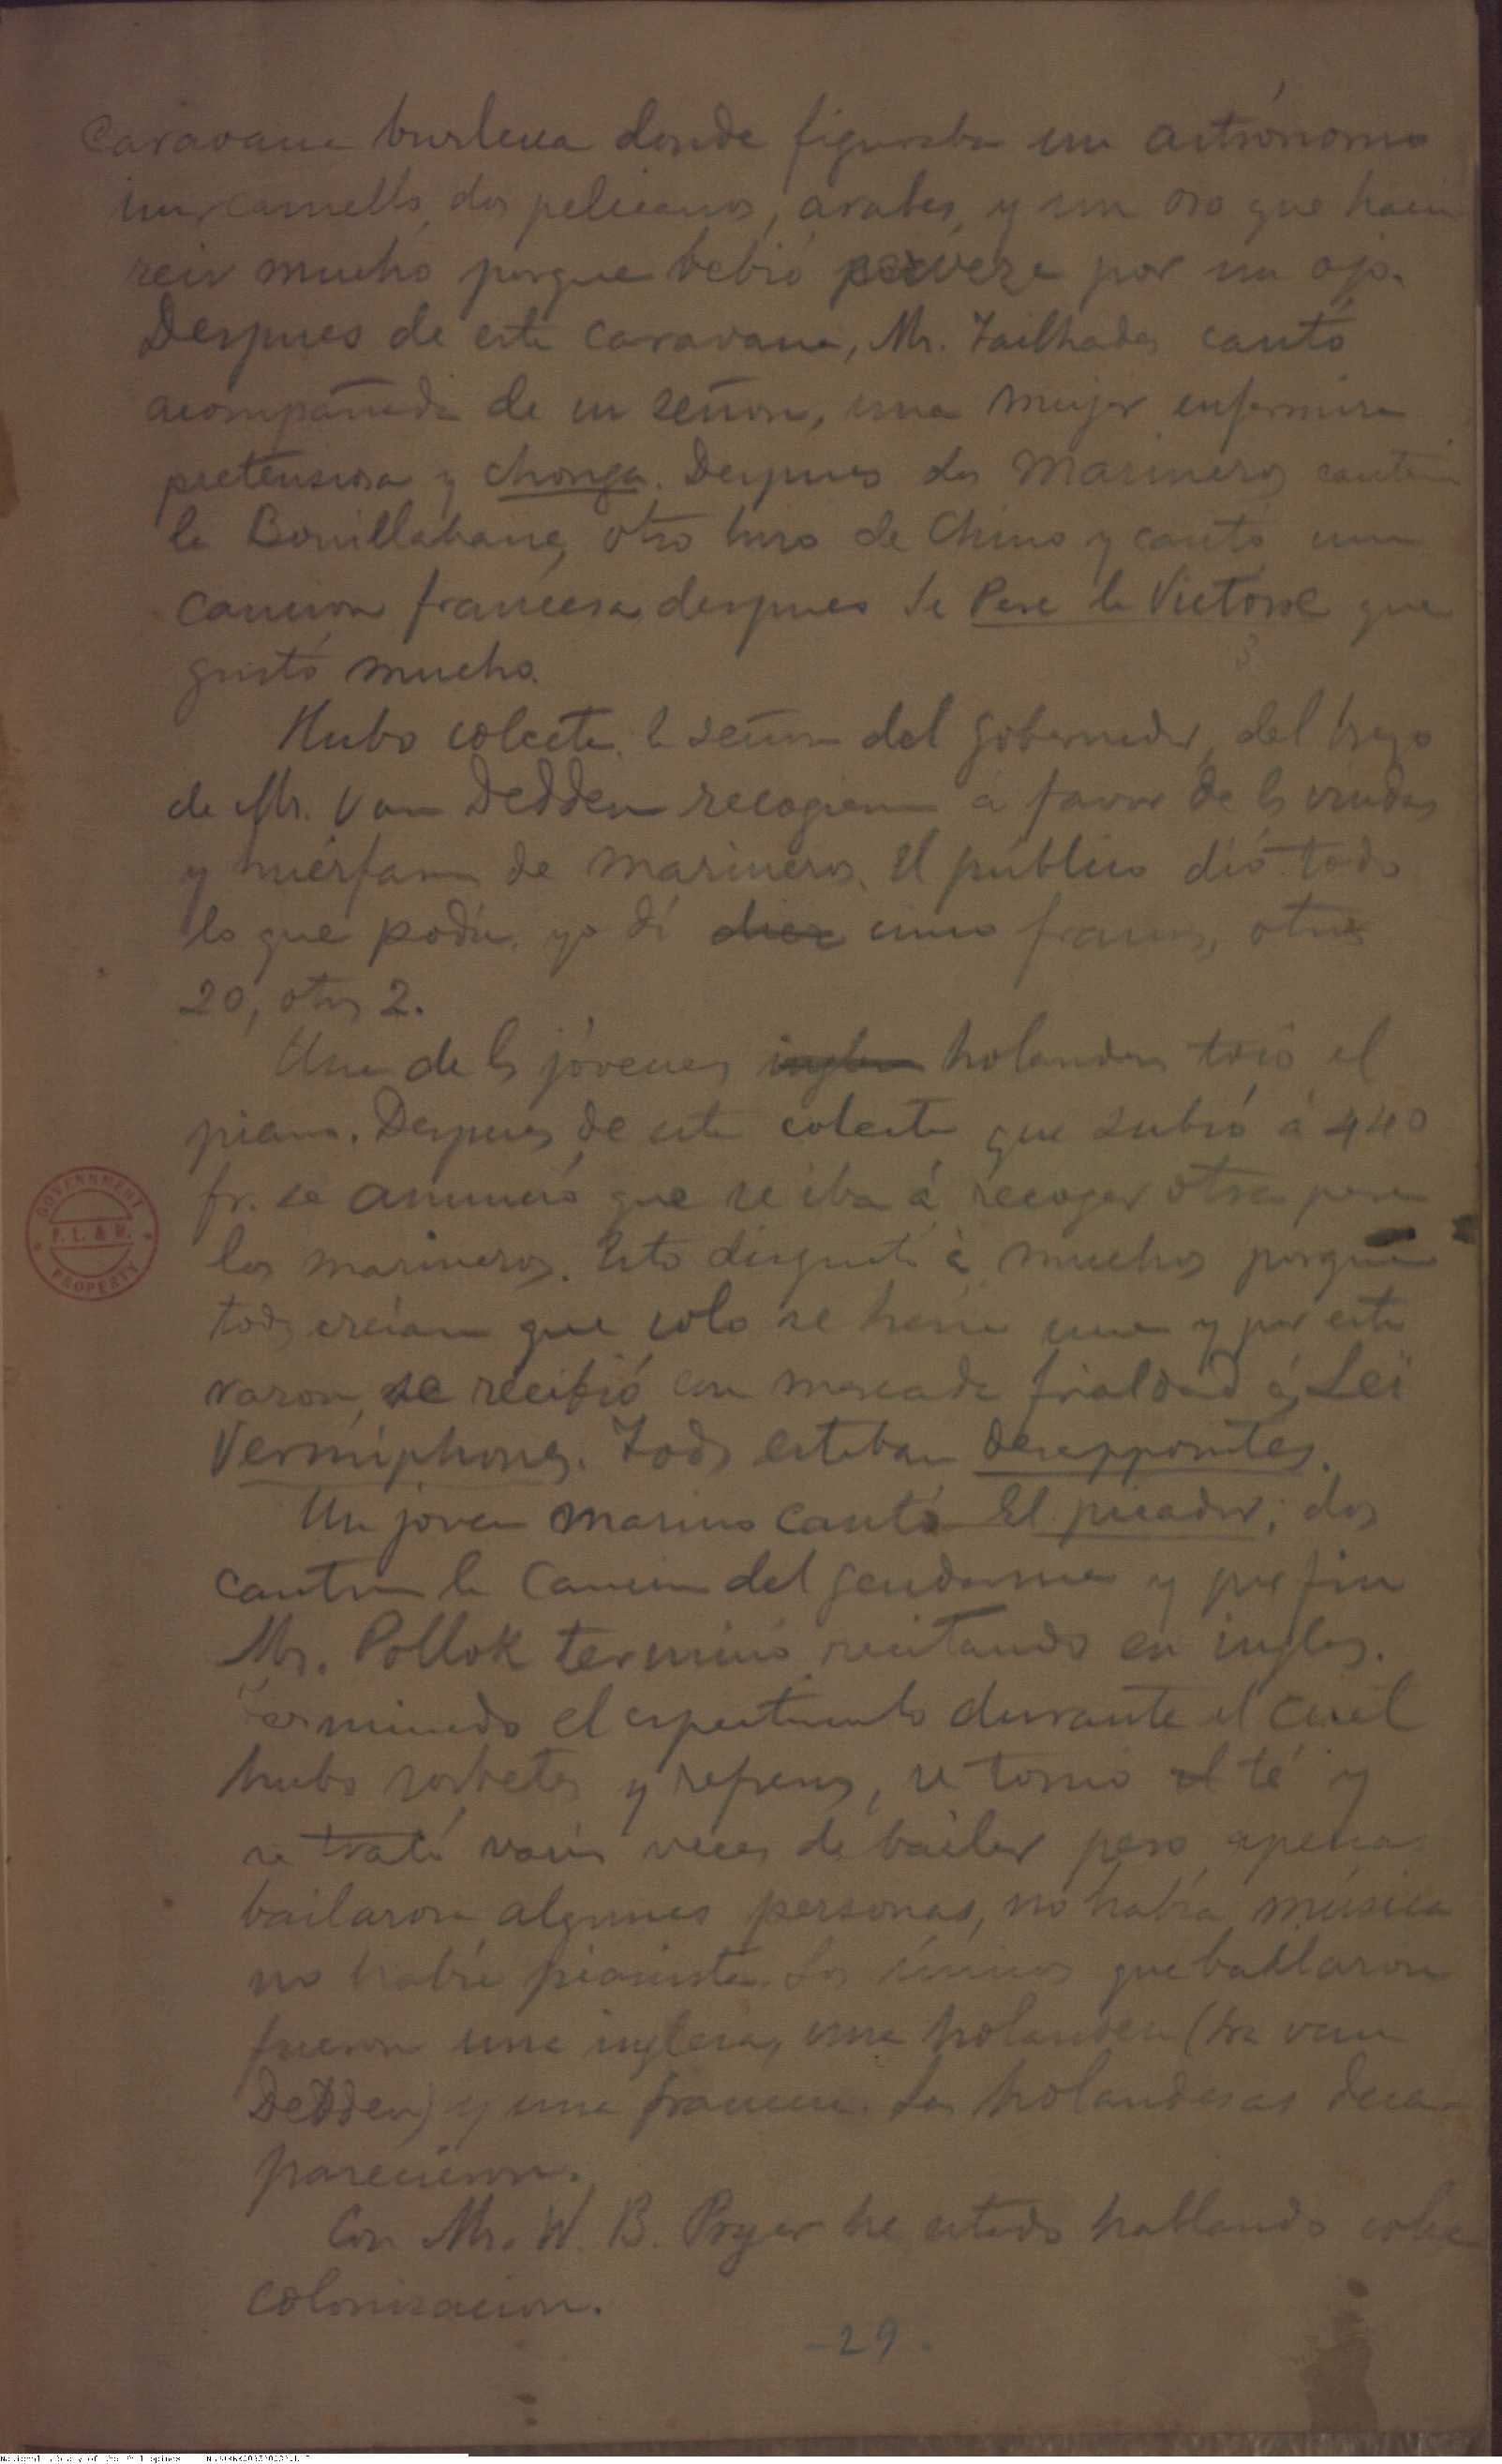 Caravana burlesca donde figuraba un astrónomo
un camello, dos pelicanos, arabes, y un oso que hacia
reir mucho porque bebió cerveza por un ojo.
Despues de esta caravana, Mr. Tailhades cantó
acompañada de su señora, una mujer enfermiza
pretensiosa y chonga. Despues dos marineros cantaron
la Bouillabaise, otro hizo de Chino y cantó una
cancion francesa despues Le Pere la Victoire que
gustó mucho.
Hubo colecta, la señora del gobernador, del
de Mr. Van Dedden recogieron á favor de las viudas
y huérfanos de marineros. El público dió todo
lo que podia, yo dí diez cinco francos, otros
20, otros 2.
Una de las jóvenes inglesas holandesas tocó el
piano. Despues de esta colecta que subió á 440
fr. se anunció que se iba á recoger otra para
los marineros. Esto disgustó á muchos porque
todos creían que solo se haria una y por esta
razon, se recibió con marcada frialdad á Les
Vermiphones. Todos estaban desappointes.
Un joven marino cantó El picador; dos
cantaron la Cancion del gendarme y por fin
Mr. Pollok terminó recitando en ingles.
Terminado el espectaculo durante el cual
hubo sorbetes y refrescos, se tomó el té y
se trató varias veces de bailar pero apenas
bailaron algunas personas, no había música
no habia pianista. Los únicos que bailaron
fueron una inglesa, una holandesa (Sra van
Dedden) y una francesa. Las holandesas desa-
parecieron.
Con Mr. W. B. Pryer he estado hablando sobre
colonizacion.
-29-
GOVERNMENT
P. L. & M.
PROPERTY